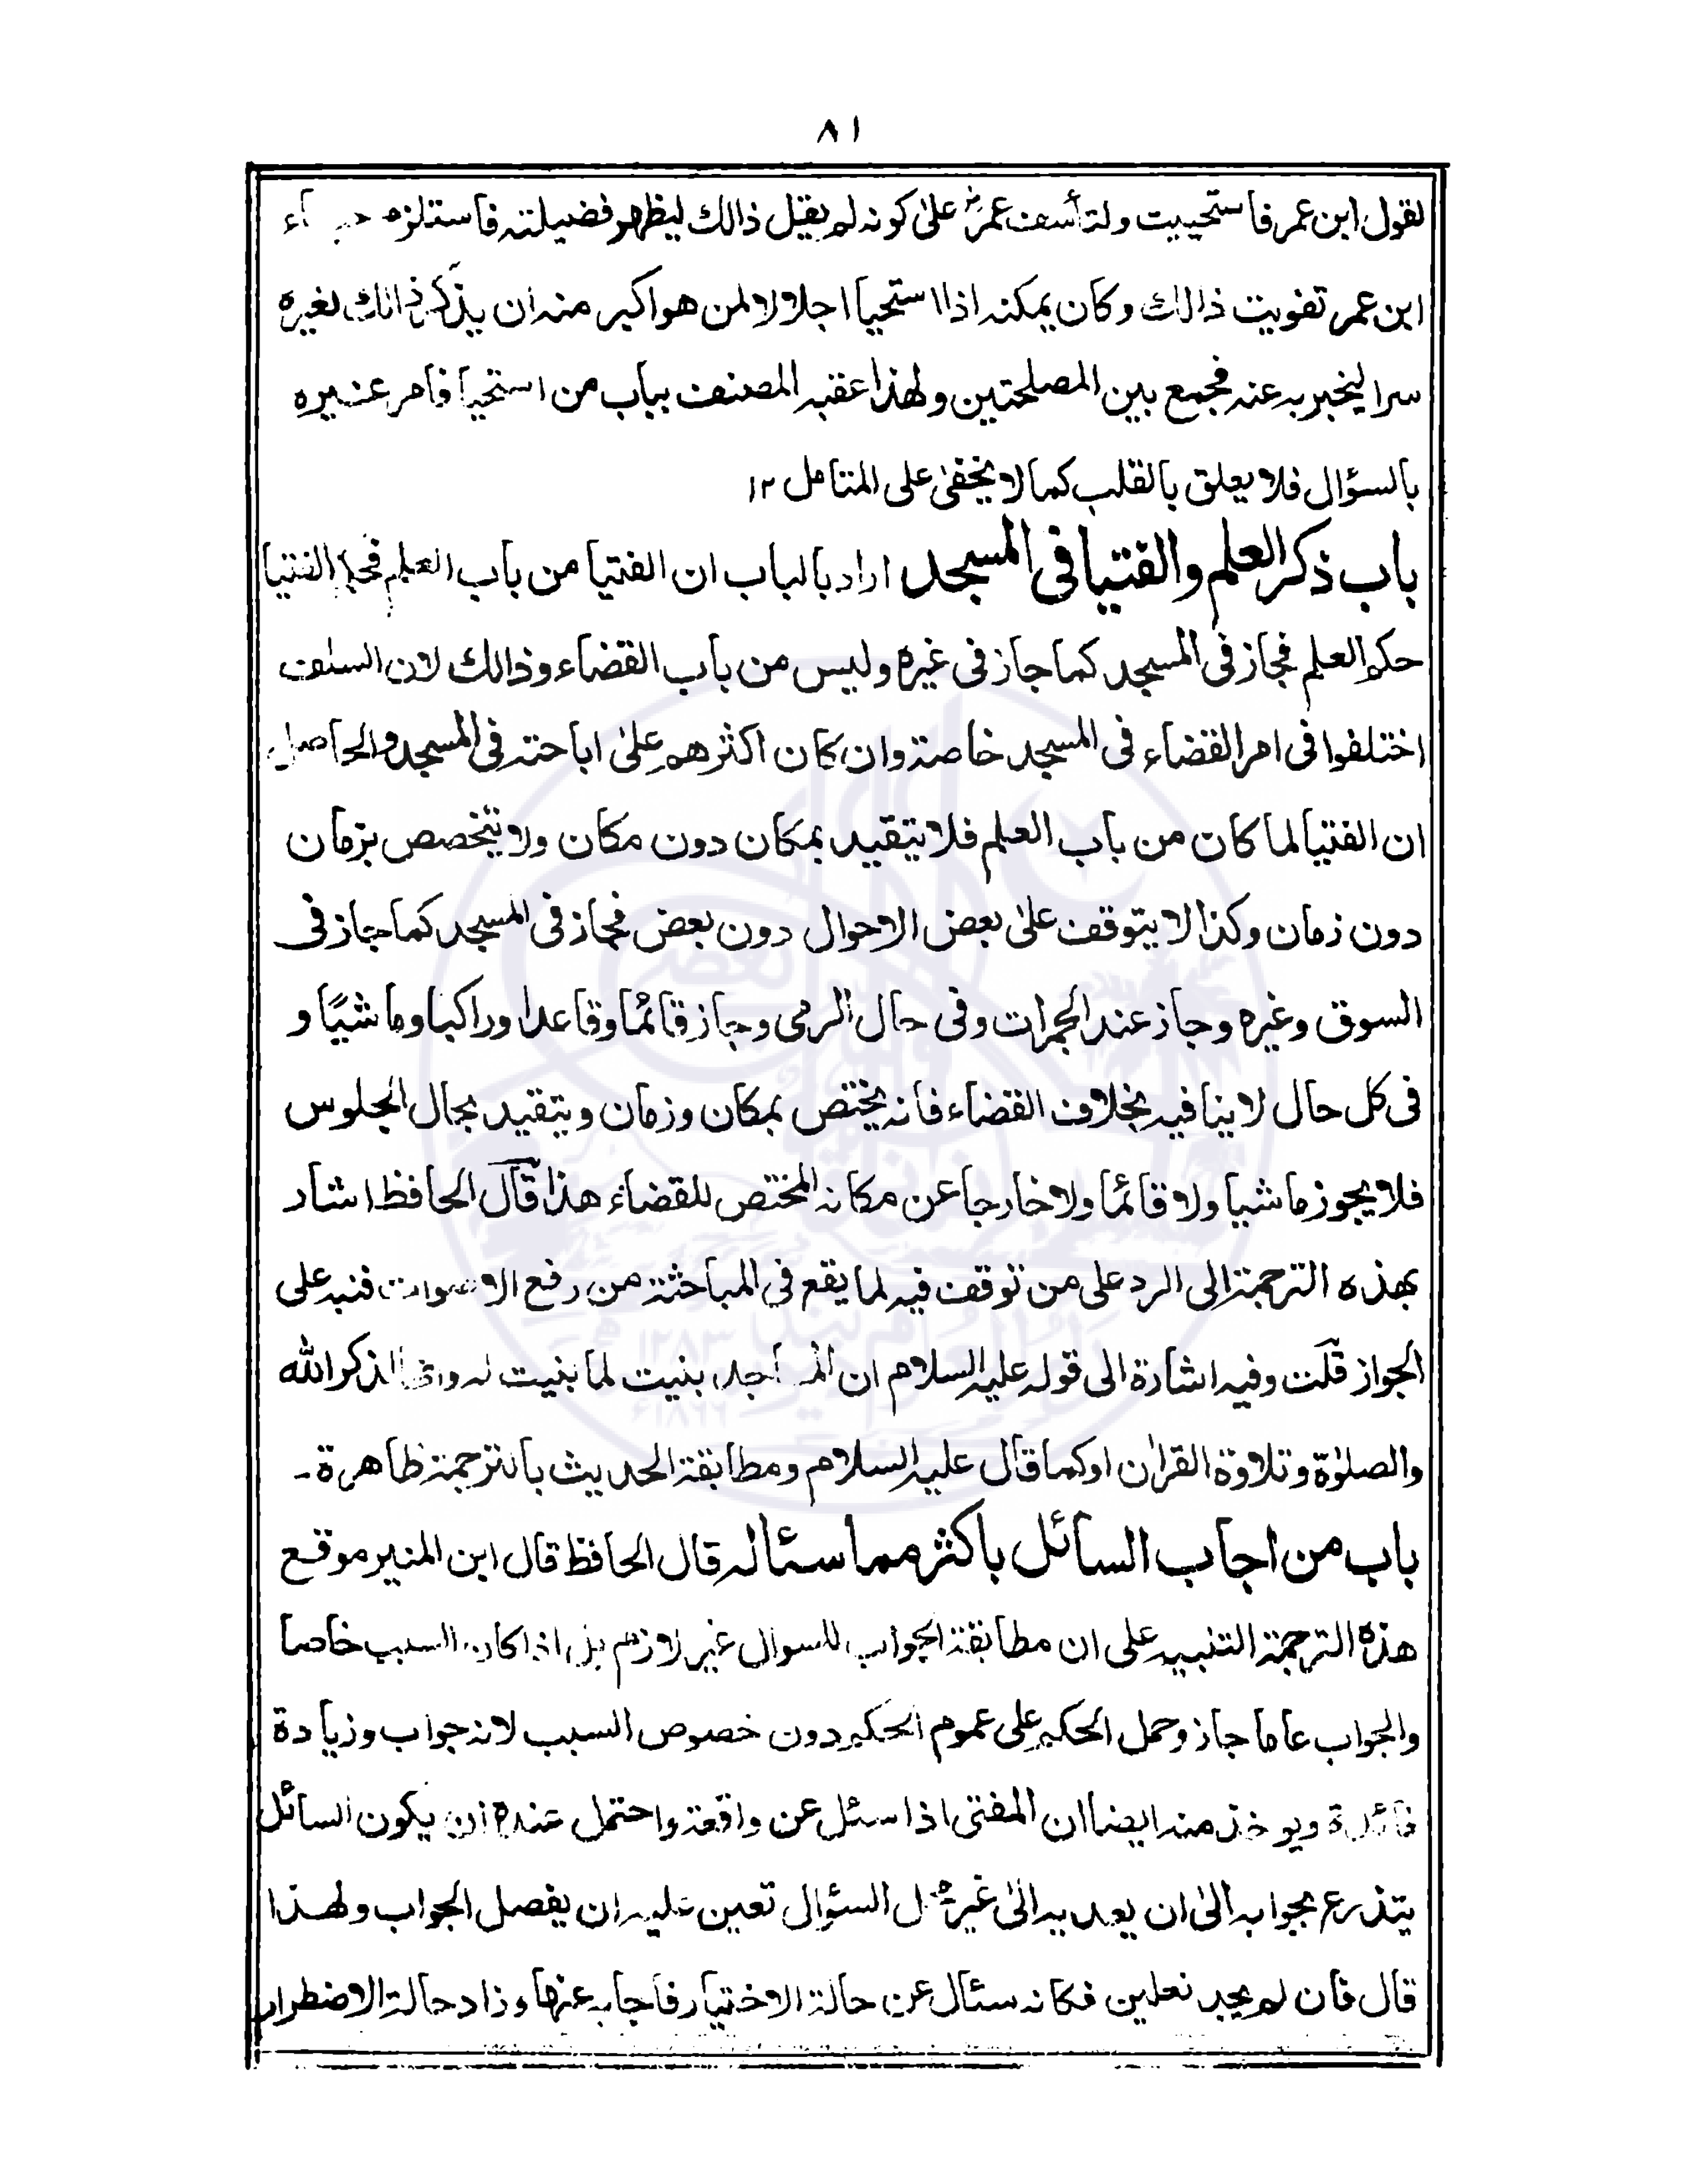 ٨١
لقول ابن عمر فاستحييت ولتأسف عمرؓ علىٰ كونه لم يقل ذالك ليظهر فضيلته فاستلزم حياء
ابن عمر تفويت ذالك وكان يمكنه اذا استحيا اجلالا لمن هو اكبر منه ان يذكر ذالك لغيره
سرا ليخبر به عنه فجمع بين المصلحتين ولهذا عقبه المصنف بباب من استحيا فامر غيره
بالسؤال فلا يعلق بالقلب كما لا يخفىٰ على المتامل ١٢
باب ذكر العلم والفتيا فى المسجد اراد بالباب ان الفتيا من باب العلم فحكم الفتيا
حكم العلم فجاز فى المسجد كما جاز فى غيره وليس من باب القضاء وذالك لان السلف
اختلفوا فى امر القضاء فى المسجد خاصة وان كان اكثرهم علىٰ اباحته فى المسجد والحاصل
ان الفتيا لما كان من باب العلم فلا يتقيد بمكان دون مكان ولا يتخصص بزمان
دون زمان وكذا لا يتوقف علىٰ بعض الاحوال دون بعض فجاز فى المسجد كما جاز فى
السوق وغيره وجاز عند الجمرات وفى حال الرمى وجاز قائما وقاعدا وراكبا وماشيًا و
فى كل حال لا ينافيه بخلاف القضاء فانه يختص بمكان وزمان ويتقيد بحال الجلوس
فلا يجوز ماشيا ولا قائما ولا خارجا عن مكانه المختص للقضاء هذا قال الحافظ اشار
بهذه الترجمة الى الرد على من توقف فيه لما يقع فى المباحثة من رفع الاصوات فنبه على
الجواز قلت وفيه اشارة الى قوله عليه السلام ان المساجد بنيت لما بنيت له وانما لذكر الله
والصلوٰة وتلاوة القرٰان اوكما قال عليه السلام ومطابقة الحديث بالترجمة ظاهرة ۔
باب من اجاب السائل باكثر مما سئاله قال الحافظ قال ابن المنير موقع
هذه الترجمة التنبيه على ان مطابقة الجواب للسوال غير لازم بل اذا كان السبب خاصا
والجواب عاما جاز وحمل الحكم على عموم الحكم دون خصوص السبب لانه جواب وزيادة
فائدة ويوخذ منه ايضا ان المفتى اذا سئل عن واقعة واحتمل عنده ان يكون السائل
يتذرع بجوابه الىٰ ان يعديه الىٰ غير محل السئوال تعين عليه ان يفصل الجواب ولهذا
قال فان لم يجد نعلين فكانه سئال عن حالة الاختيار فاجابه عنها وزاد حالة الاضطرار